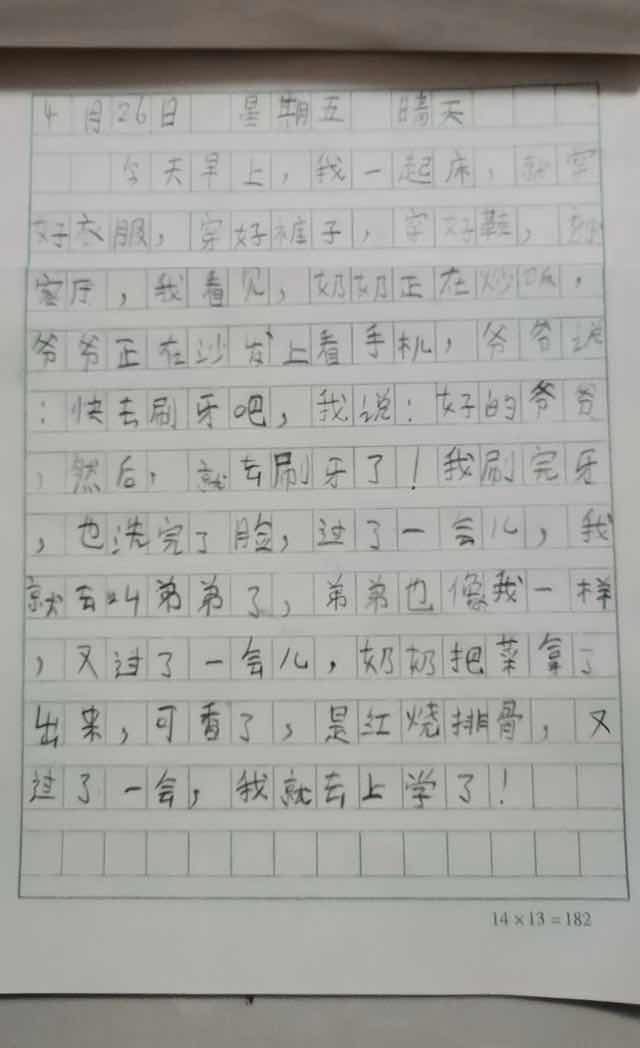 4月26日 星期五 晴天
今天早上，我一起床，就穿
好衣服，穿好裤子，穿好鞋，到
客厅，我看见，奶奶正在炒饭，
爷爷正在沙发上看手机，爷爷说
：快去刷牙吧，我说：好的爷爷
，然后，就去刷牙了！我刷完牙
，也洗完了脸，过了一会儿，我
就去叫弟弟了，弟弟也像我一样
，又过了一会儿，奶奶把菜拿了
出来，可香了，是红烧排骨，又
过了一会，我就去上学了！
14×13=182